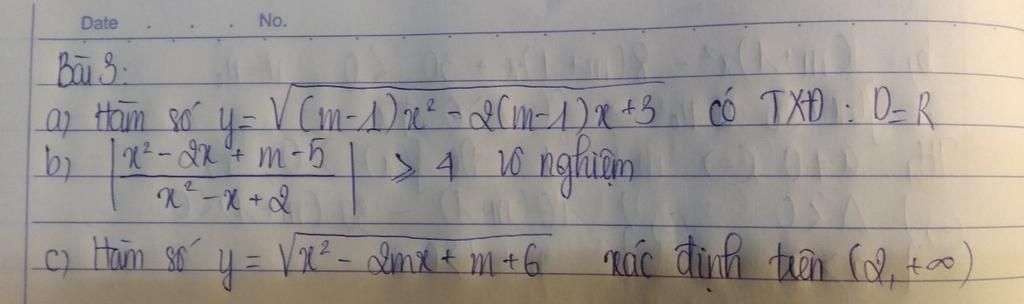 Date . . . . No.
Bài 3:
a) Hàm số y = √((m-1)x² - 2(m-1)x + 3) có TXĐ : D = R
b) |(x² - 2x + m - 5)/(x² - x + 2)| > 4 vô nghiệm
c) Hàm số y = √(x² - 2mx + m + 6) xác định trên (2, +∞)